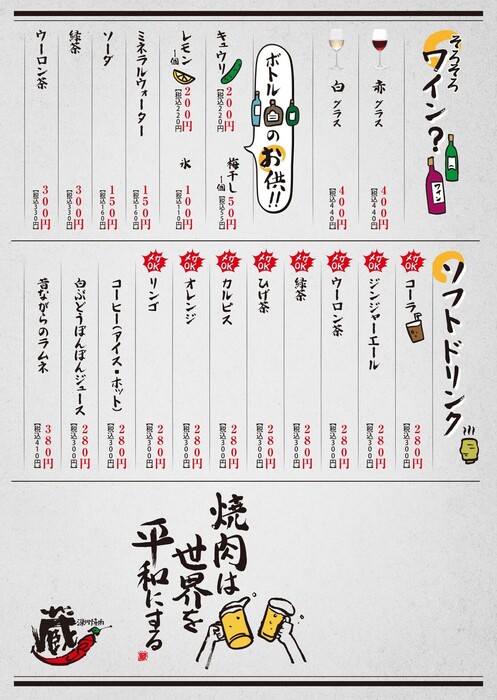 そろそろ
ワイン？
ワイン
赤 グラス
400円
【税込440円】
白 グラス
400円
【税込440円】
ボトルのお供!!
キュウリ
200円
【税込220円】
梅干し
1個
50円
【税込55円】
レモン
1個
200円
【税込220円】
氷
100円
【税込110円】
ミネラルウォーター
150円
【税込160円】
ソーダ
150円
【税込160円】
緑茶
300円
【税込330円】
ウーロン茶
300円
【税込330円】
ソフトドリンク
メガOK
コーラ
280円
【税込300円】
メガOK
ジンジャーエール
280円
【税込300円】
メガOK
ウーロン茶
280円
【税込300円】
メガOK
緑茶
280円
【税込300円】
メガOK
ひげ茶
280円
【税込300円】
メガOK
カルピス
280円
【税込300円】
メガOK
オレンジ
280円
【税込300円】
メガOK
リンゴ
280円
【税込300円】
コーヒー(アイス・ホット)
280円
【税込300円】
白ぶどうぼんぼんジュース
280円
【税込300円】
昔ながらのラムネ
380円
【税込410円】
焼肉は
世界を
平和にする
蔵